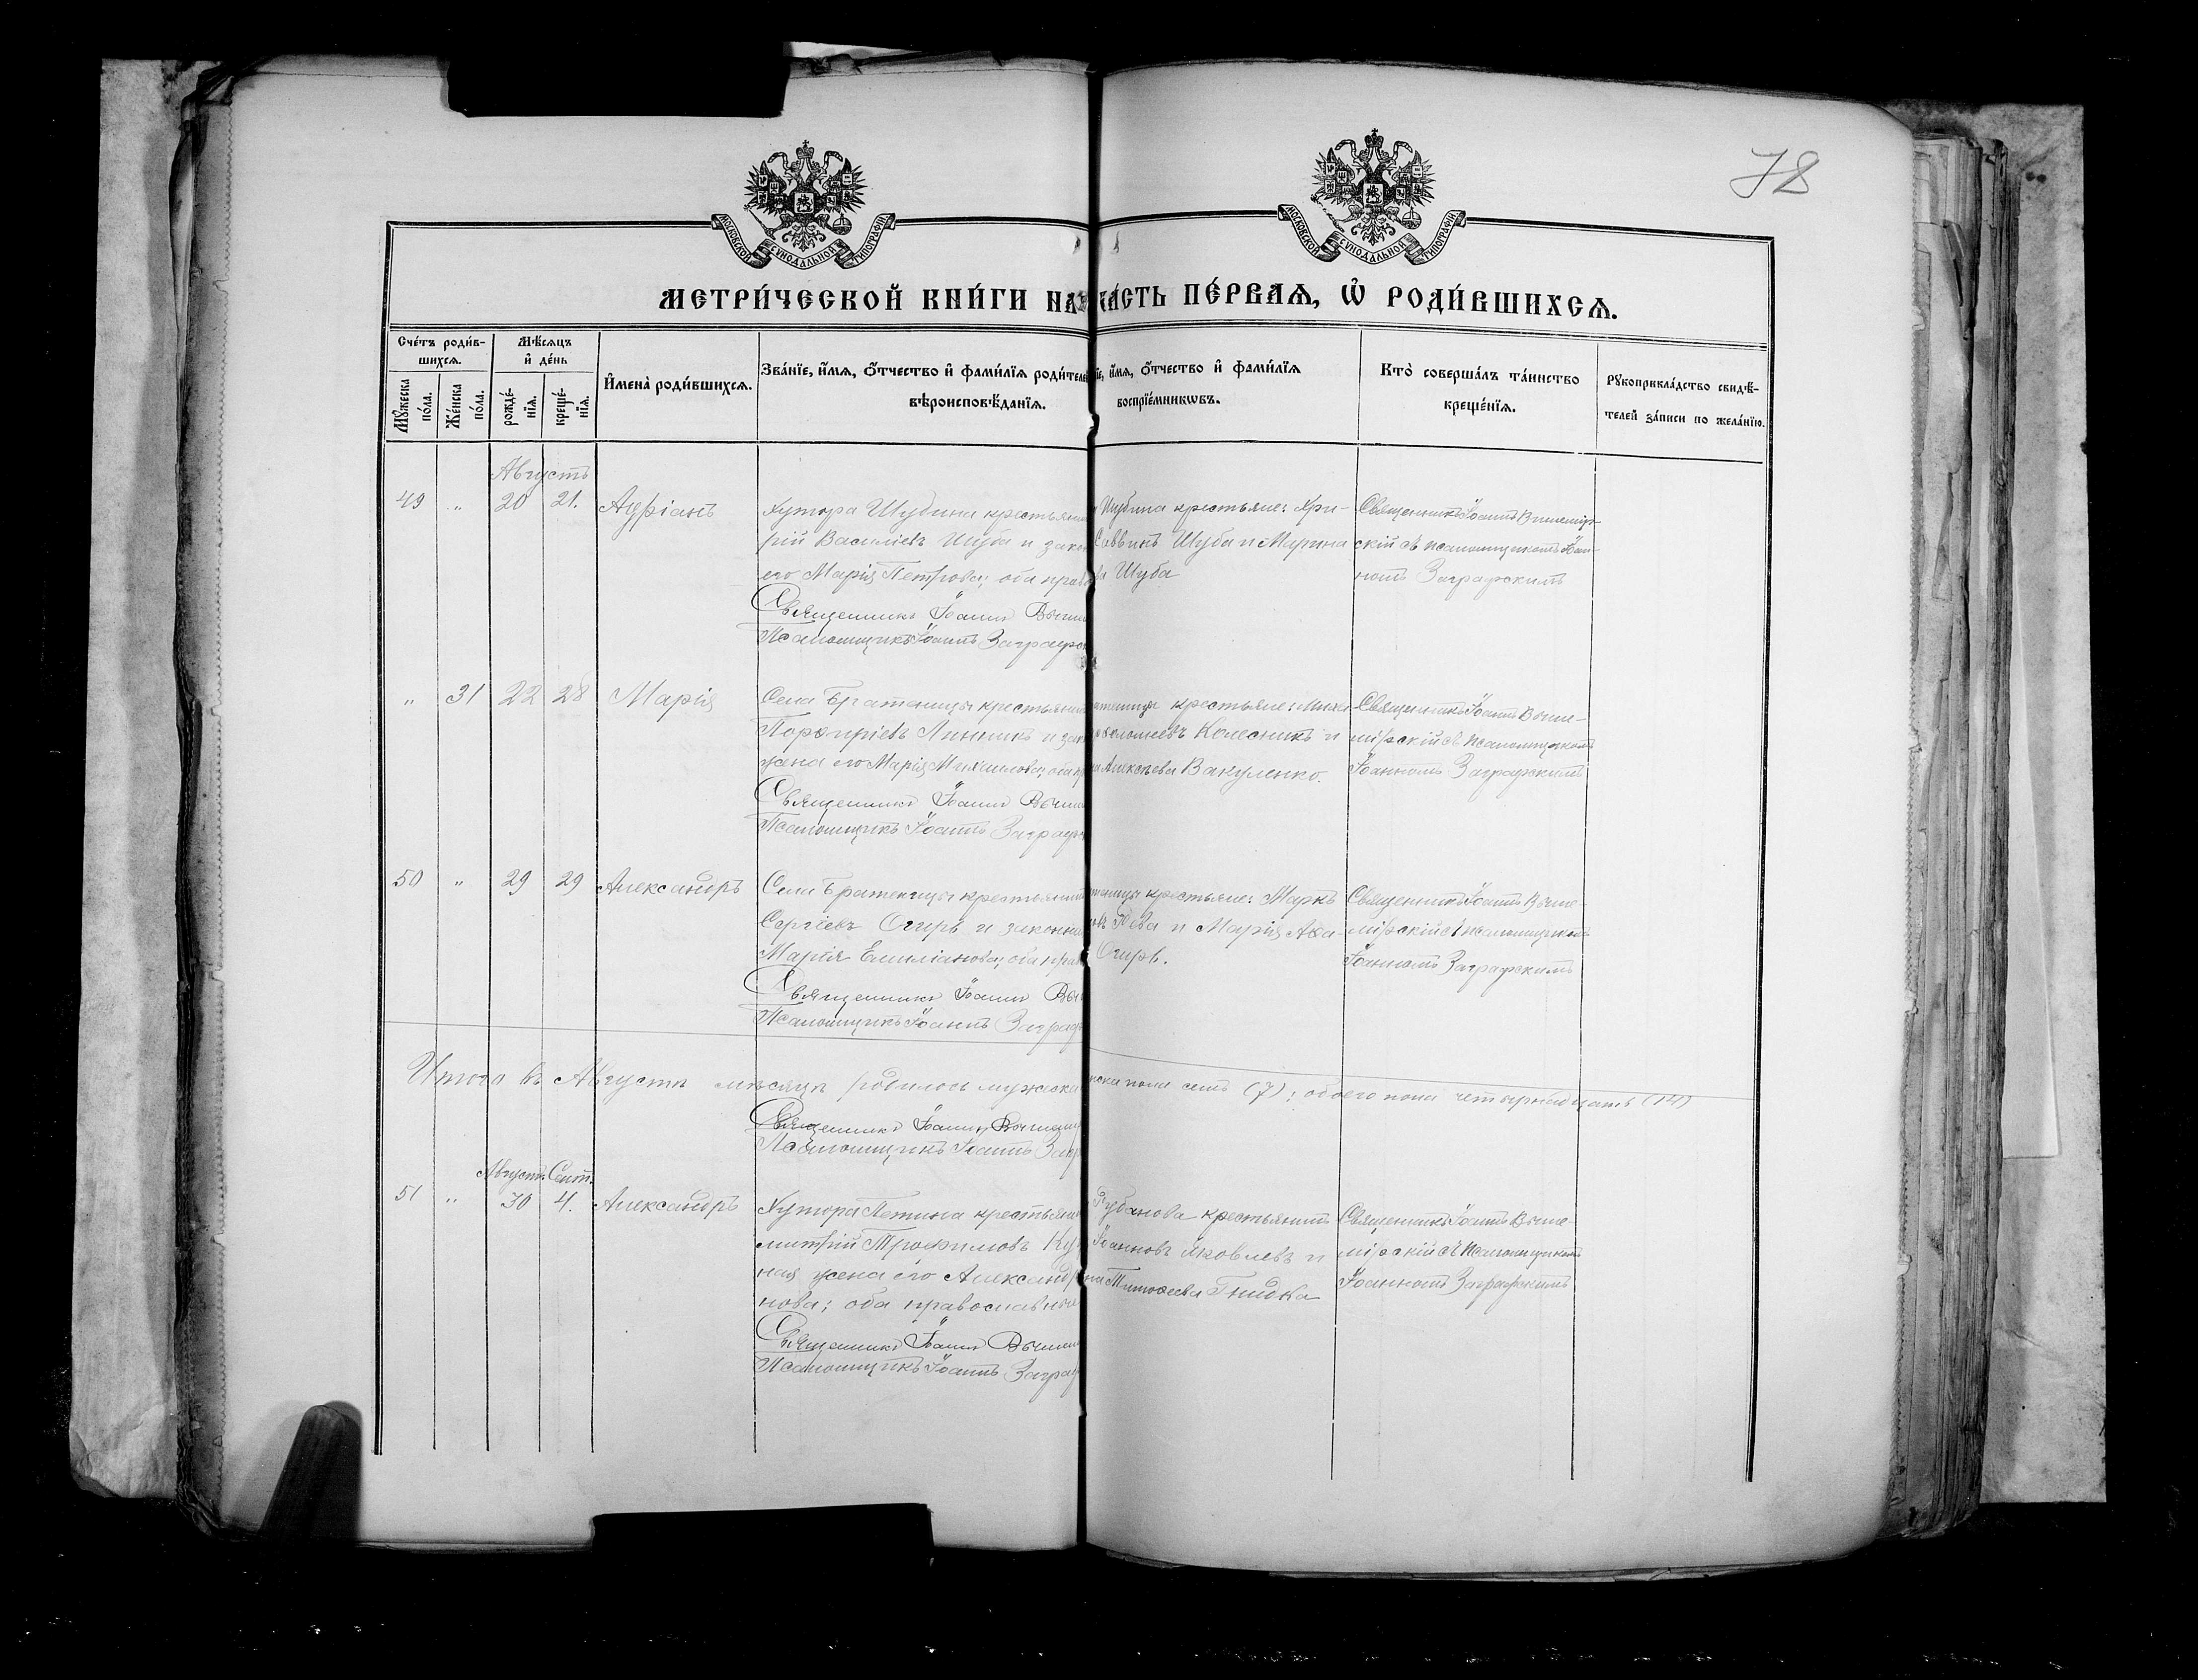 78
МОСКОВСКОЙ СѴНОДАЛЬНОЙ ТИПОГРАФІИ
МОСКОВСКОЙ СѴНОДАЛЬНОЙ ТИПОГРАФІИ
МЕТРИ́ЧЕСКОЙ КНИ́ГИ НА
ЧА́СТЬ ПЕ́РВАѦ, Ѽ РОДИ́ВШИХСѦ.
Сче́тъ роди́в-
шихсѧ.
Мѣ́сѧцъ
и҆ де́нь
Мꙋ́жеска
по́ла.
Же́нска
по́ла.
рожде́-
нїѧ.
креще́-
нїѧ.
И҆мена̀ роди́вшихсѧ.
Зва́нїе, и҆́мѧ, ѻ҆́тчество и҆ фами́лїѧ роди́теле
вѣроисповѣ́данїѧ.
їе, и҆́мѧ, ѻ҆́тчество и҆ фами́лїѧ
воспрїе́мникѡвъ.
Кто̀ соверша́лъ та́инство
креще́нїѧ.
Рꙋкоприкла́дство свидѣ́-
телей за́писи по жела́нїю.
Августъ
49 " 20 21. Адріанъ
Хутора Шубина крестьянин
рій Васильевъ Шуба и зако
его Марія Петрова; оба прав
Священникъ Іоаннъ Выше
Псаломщикъ Іоаннъ Заграфс
Шубина крестьяне: Гри-
Саввинъ Шуба и Марина
ва Шуба
Священникъ Іоаннъ Вышемір-
скій съ псаломщикомъ Іоан-
номъ Заграфскимъ
" 31 22 28 Марія
Села Братеницы крестьянин
Порфиріевъ Линникъ и зак
жена его Марія Михаилова; оба пр
Священникъ Іоаннъ Выше
Псаломщикъ Іоаннъ Заграф
атеницы крестьяне: Миха
Колесникъ и
на Алексѣева Вакуленко.
Священникъ Іоаннъ Выше-
мірскій съ псаломщикомъ
Іоанномъ Заграфскимъ
50 " 29 29 Александръ
Села Братеницы крестьянинъ
Сергіевъ Огирь и законна
Марія Емиліанова; оба прав
Священникъ Іоаннъ Выш
Псаломщикъ Іоаннъ Заграф
теницы крестьяне: Маркъ
овъ Рева и Марія Афа-
Огирь.
Священникъ Іоаннъ Выше-
мірскій съ псаломщикомъ
Іоанномъ Заграфскимъ
Итого въ Августѣ мѣсяцѣ родилось мужеска
нска пола семь (7); обоего пола четырнадцать (14)
Священникъ Іоаннъ Вышемі
Псаломщикъ Іоаннъ Загр
Августъ Сент.
51 " 30 4. Александръ
Хутора Петина крестьянин
митрій Трофимовъ Ку
ная жена его Александр
нова; оба православные
Священникъ Іоаннъ Выше
Псаломщикъ Іоаннъ Заграф
Рубанова крестьянинъ
Іоанновъ Яковлевъ и
на Тимофеева Гнидка
Священникъ Іоаннъ Выше-
мірскій съ псаломщикомъ
Іоанномъ Заграфскимъ